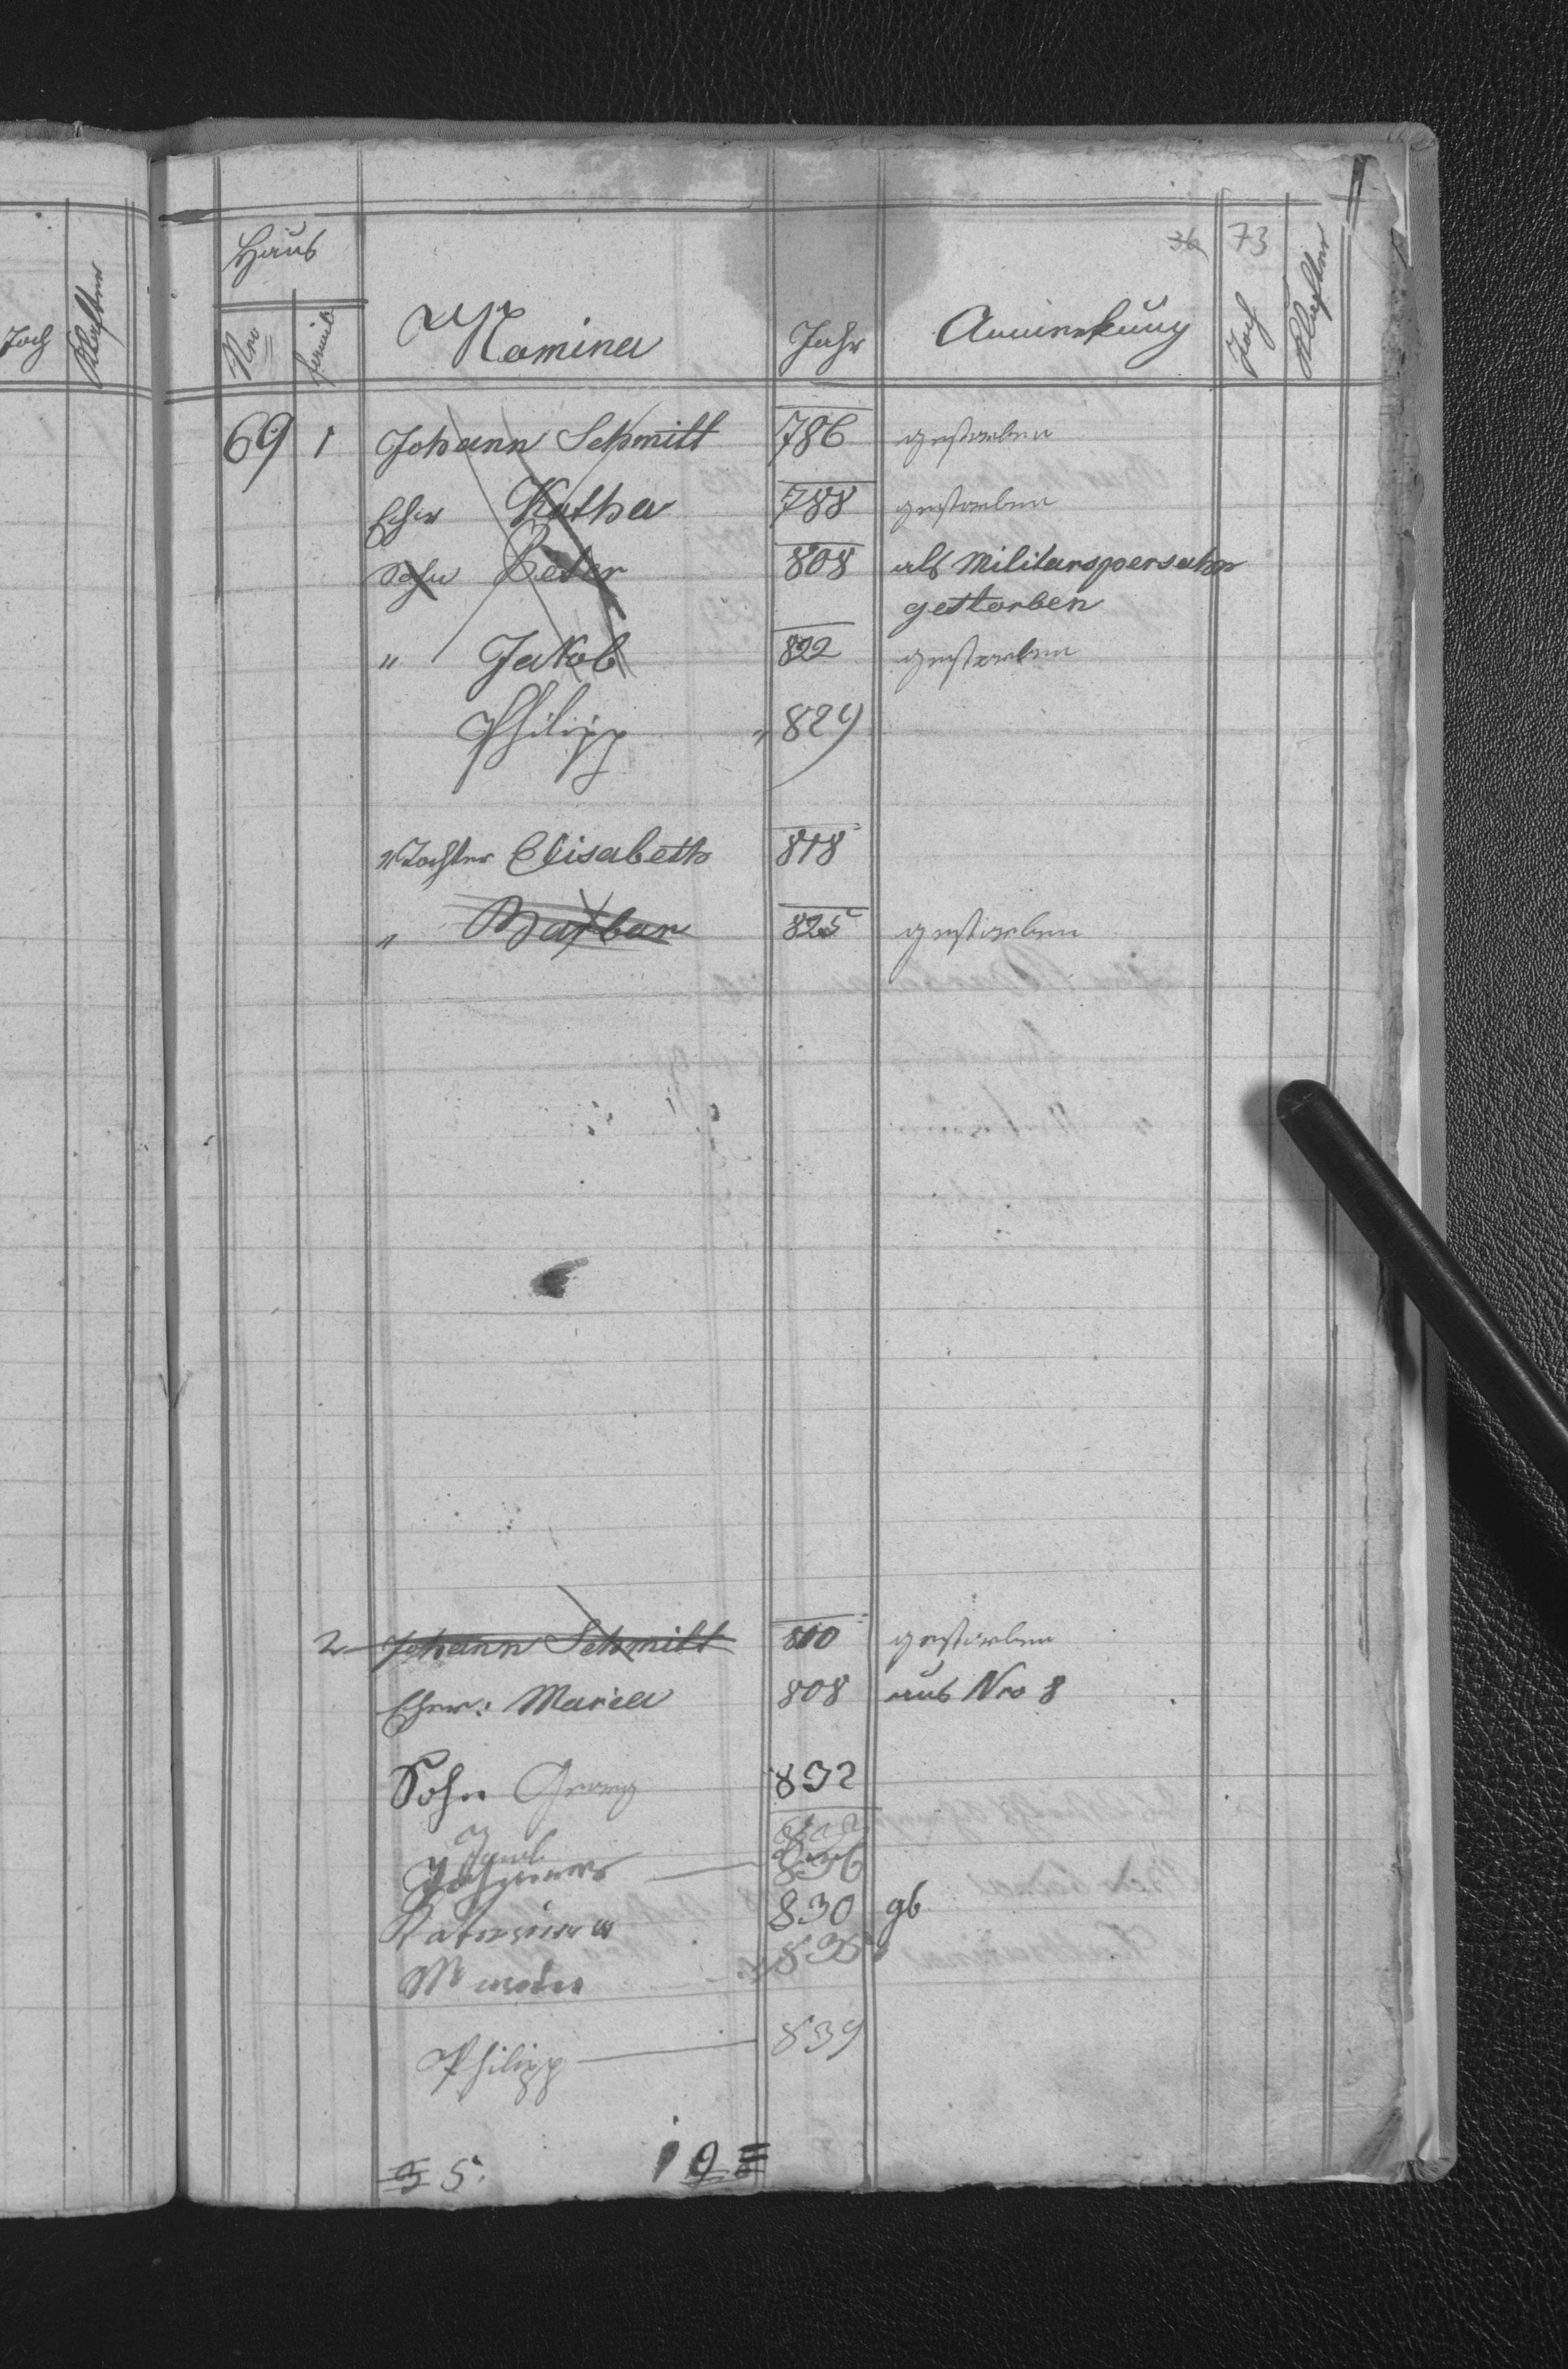 Joch Klafter
36 73
Haus
Nro Famile Namina Jahr Anmerkung Joch Klafter
69 1 Johann Schmitt 786 gestorben
Ehw Katha 788 gestorben
Sohn Peter 808 als Militarspersohn
gestorben
" Jakob 822 gestorben
Philipp " 829
Tochter Elisabeth 818
" Barbar 825 gestorben
2 Johann Schmitt 810 gestorben
Ehw: Maria 808 aus Nro 8
Sohn Georg 832
Jacob
Johannes — 836
Katarina 830 gb
835
Philipp — 839
5. 10